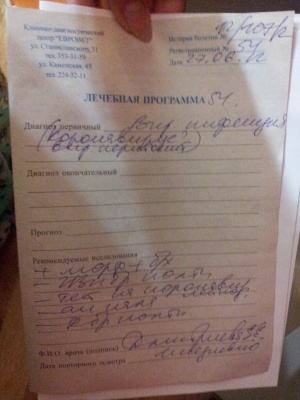 Клинико-диагностический
центр "ЕВРОВЕТ"
ул. Станиславского, 31
тел. 353-51-59
ул. Каменская, 45
тел. 224-32-11
История болезни №
Регистрационный № 54
Дата 27.06.12
ЛЕЧЕБНАЯ ПРОГРАММА 54.
Диагноз первичный Вир инфекция
(Коронавирус?)
вир перитонит
Диагноз окончательный
Прогноз
Рекомендуемые исследования
+ морф + бх
тест на коронавир
Ф.И.О. врача (подпись) Дмитриева
Дата повторного осмотра